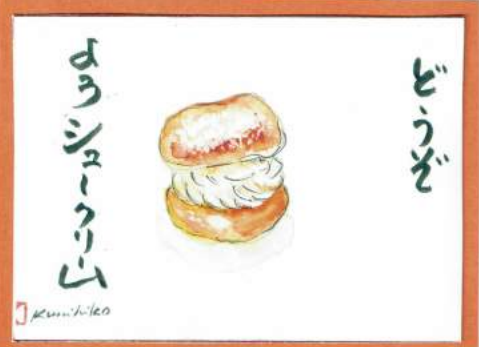 どうぞ
よろシュークリム
Kunihiko